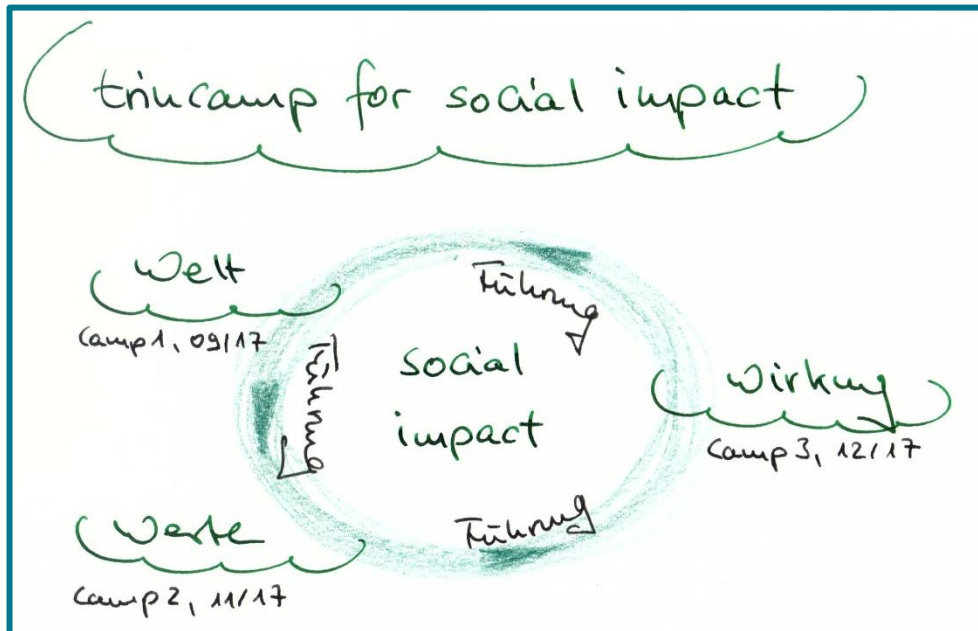 trincamp for social impact
Welt
Camp 1, 09/17
Führung
Führung
social
impact
Wirkung
Camp 3, 12/17
Führung
Werte
Camp 2, 11/17